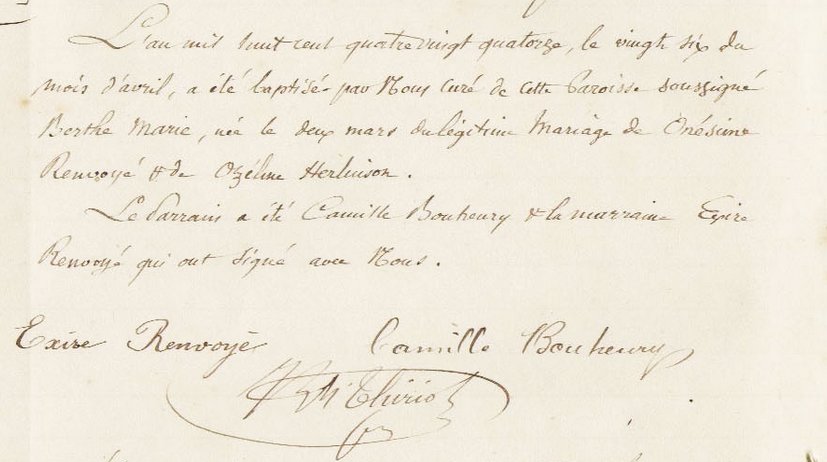 L'an mil huit cent quatre vingt quatorze, le vingt six du
mois d'avril, a été baptisé par Nous curé de cette Paroisse soussigné
Berthe Marie, née le deux mars du légitime Mariage de Onésime
Renvoyé & de Ozéline Herluison.
Le Parrain a été Camille Bouheury & la marraine Exire
Renvoyé qui ont signé avec Nous.
Exire Renvoyé Camille Bouheury
Thiriot